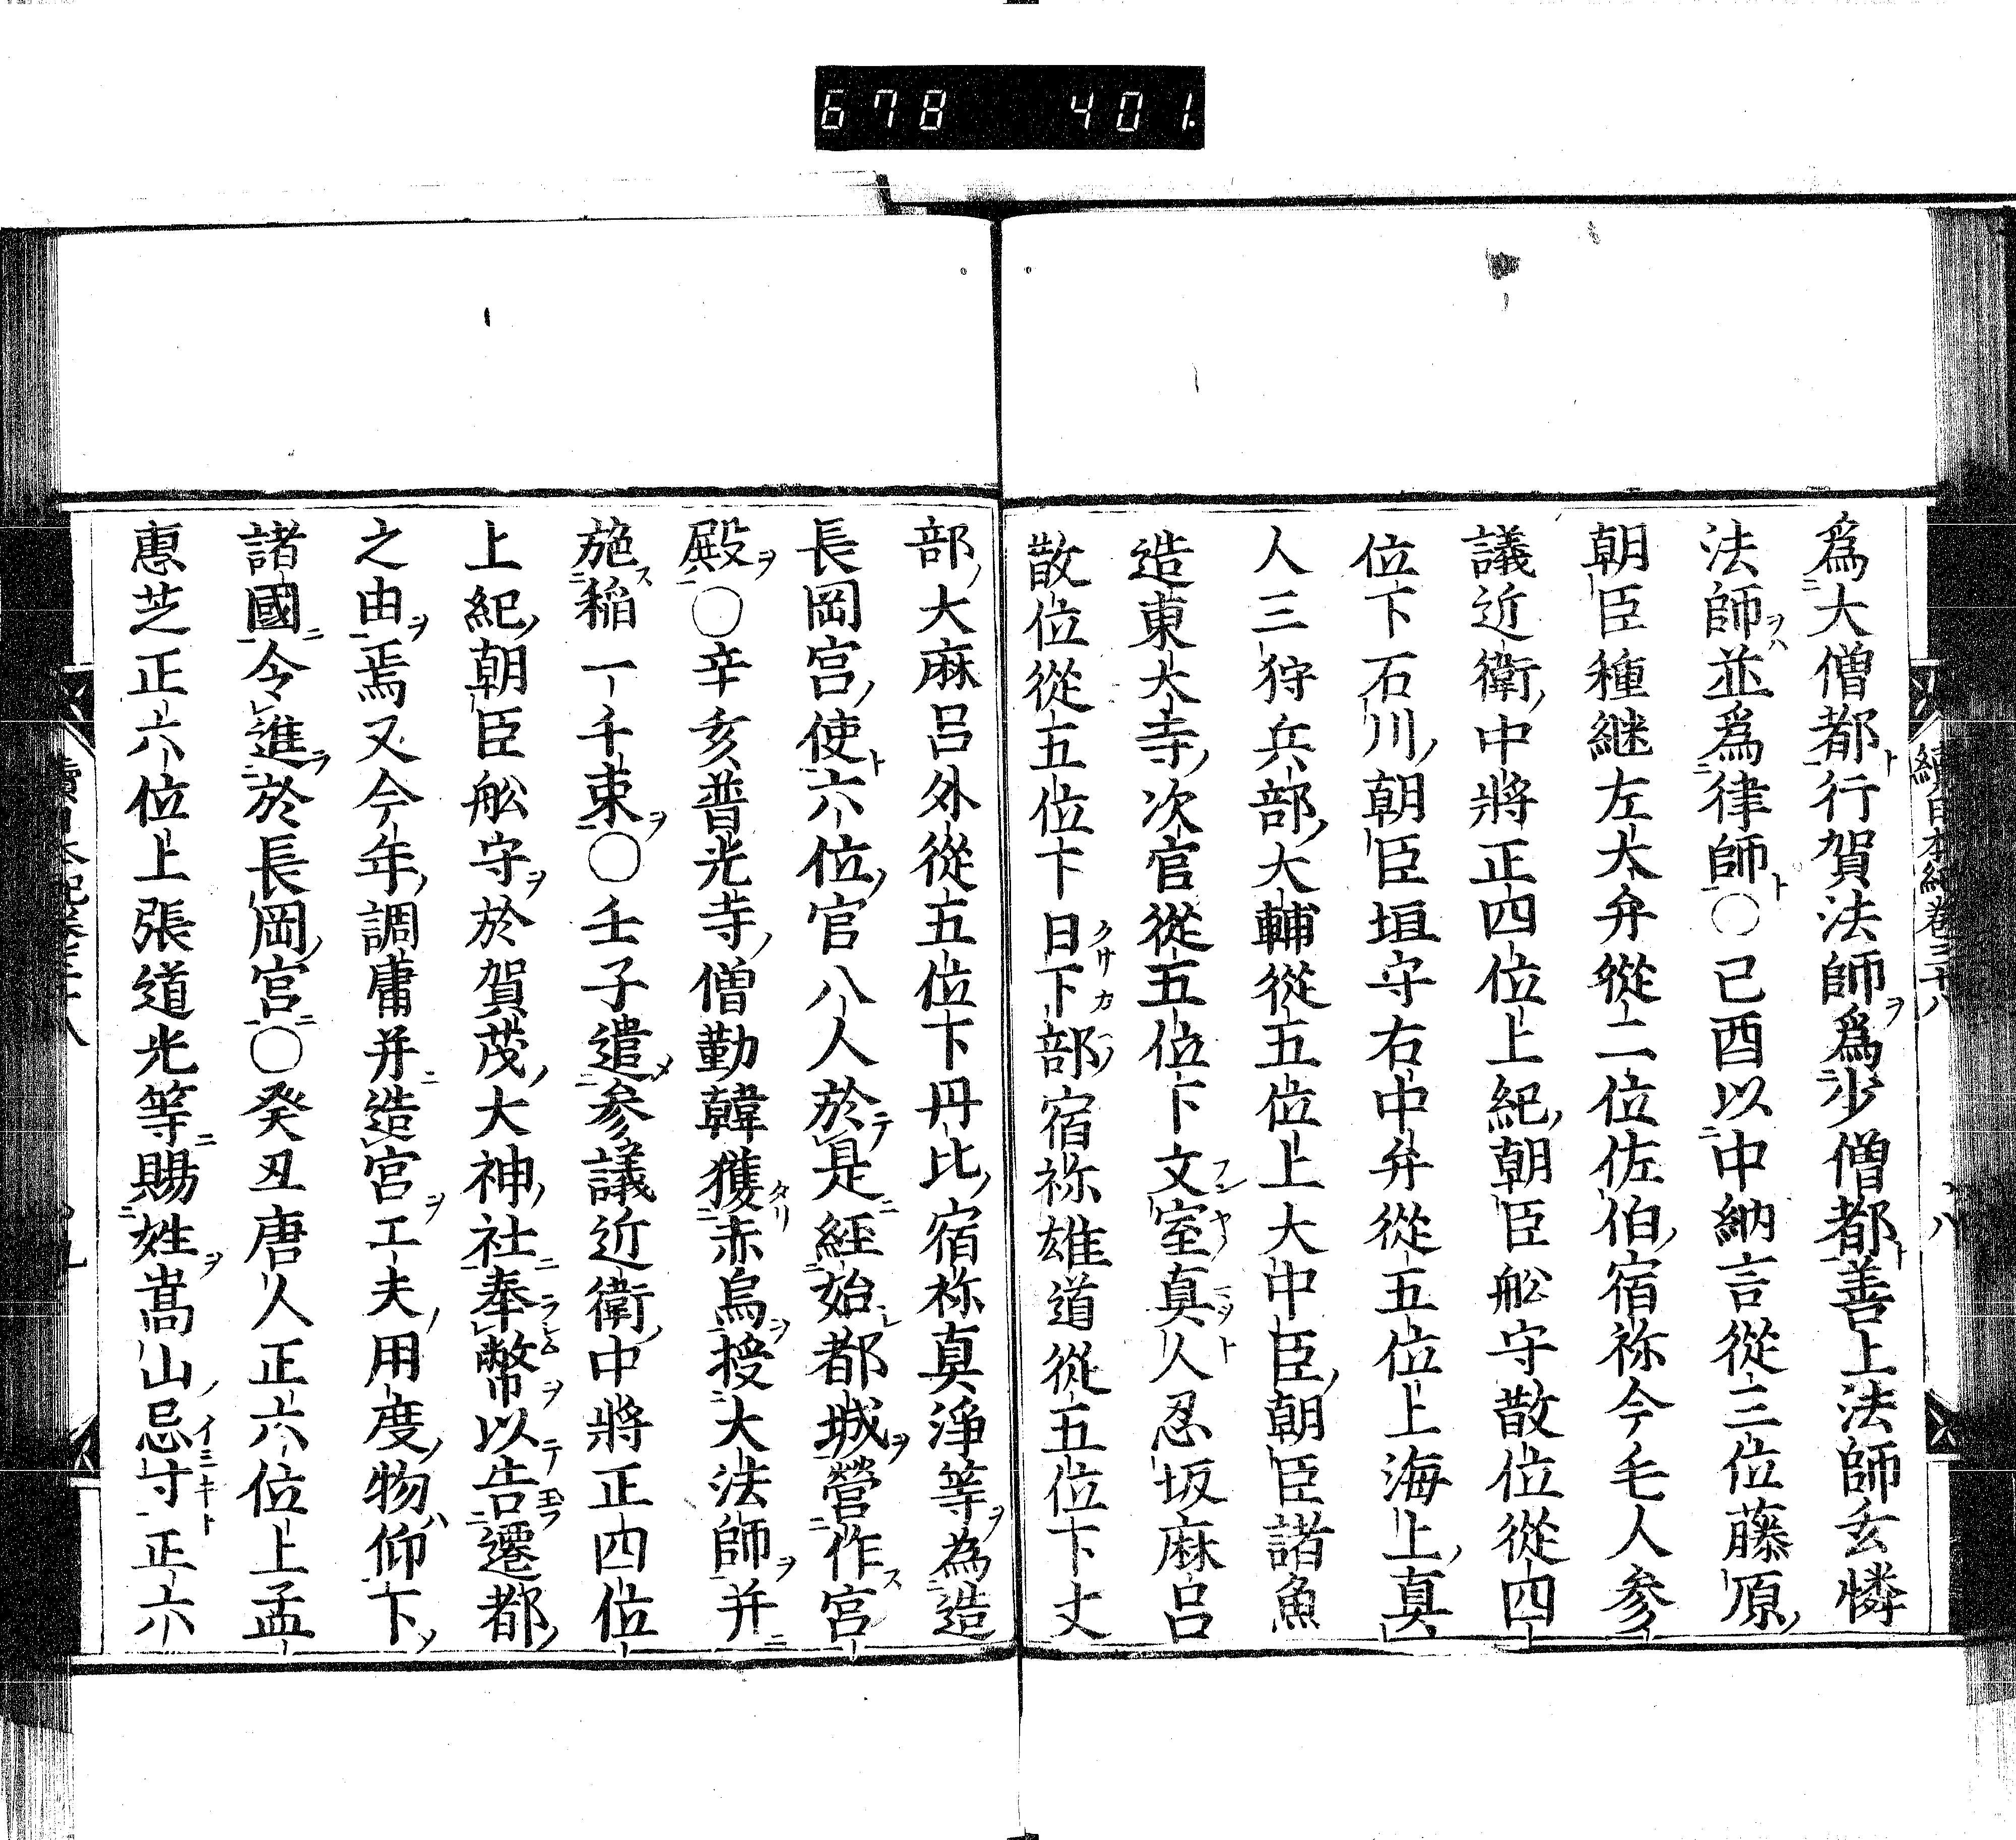 678 401
續日本紀卷三十八
八
爲大僧都行賀法師爲少僧都善上法師玄憐
法師並爲律師○己酉以中納言從三位藤原
朝臣種継左大弁從二位佐伯宿祢今毛人參
議近衛中將正四位上紀朝臣舩守散位從四
位下石川朝臣垣守右中弁從五位上海上真
人三狩兵部大輔從五位上大中臣朝臣諸魚
造東大寺次官從五位下文室真人忍坂麻呂
散位從五位下日下部宿祢雄道從五位下丈
部大麻呂外從五位下丹比宿祢真淨等為造
長岡宮使六位官八人於是經始都城營作宮
殿○辛亥普光寺僧勤韓獲赤烏授大法師并
施稲一千束○壬子遣參議近衛中將正四位
上紀朝臣舩守於賀茂大神社奉幣以告遷都
之由焉又今年調庸并造宮工夫用度物仰下
諸國令進於長岡宮○癸丑唐人正六位上孟
惠芝正六位上張道光等賜姓嵩山忌寸正六
續日本紀卷三十八
九